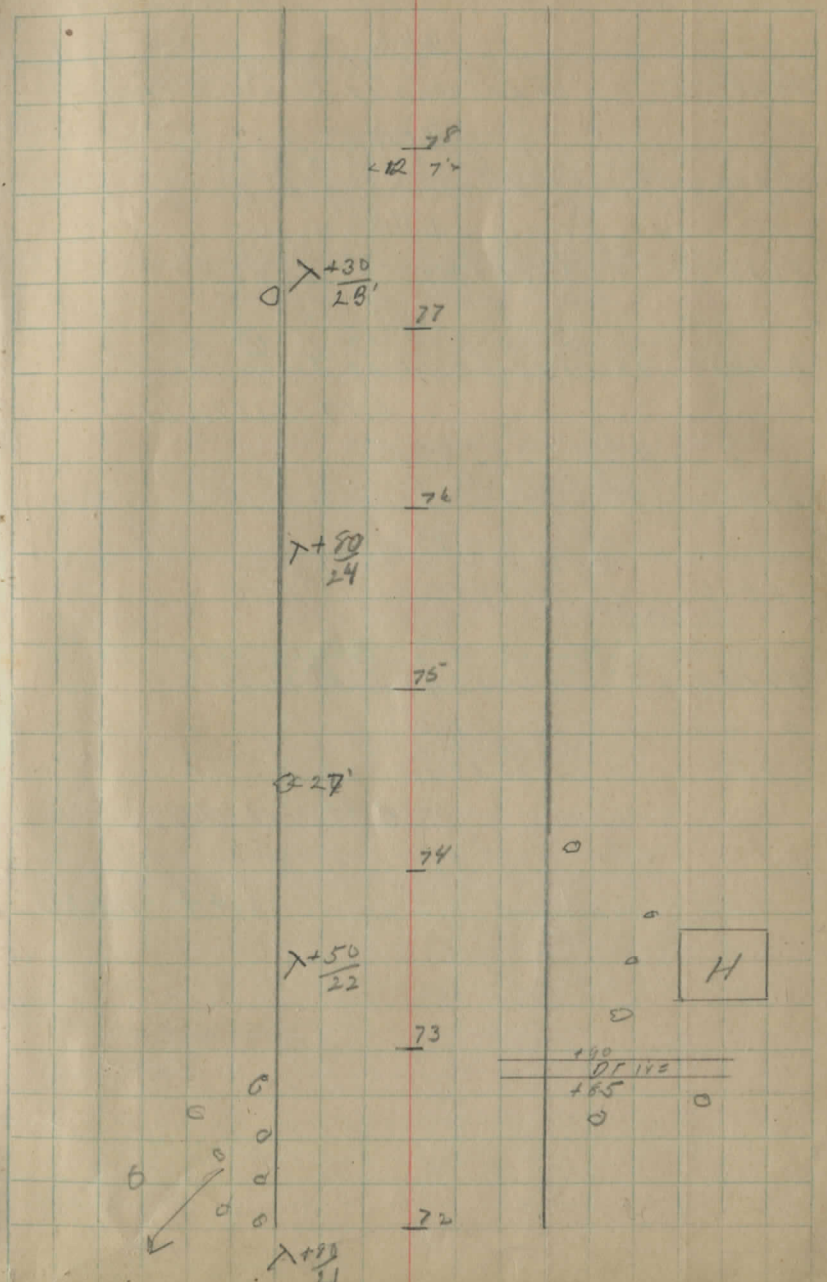 78
<12 7'>
λ +30
28'
77
76
λ + 80
24
75
27'
74
λ +50
22
73
+90
Drive
+85
72